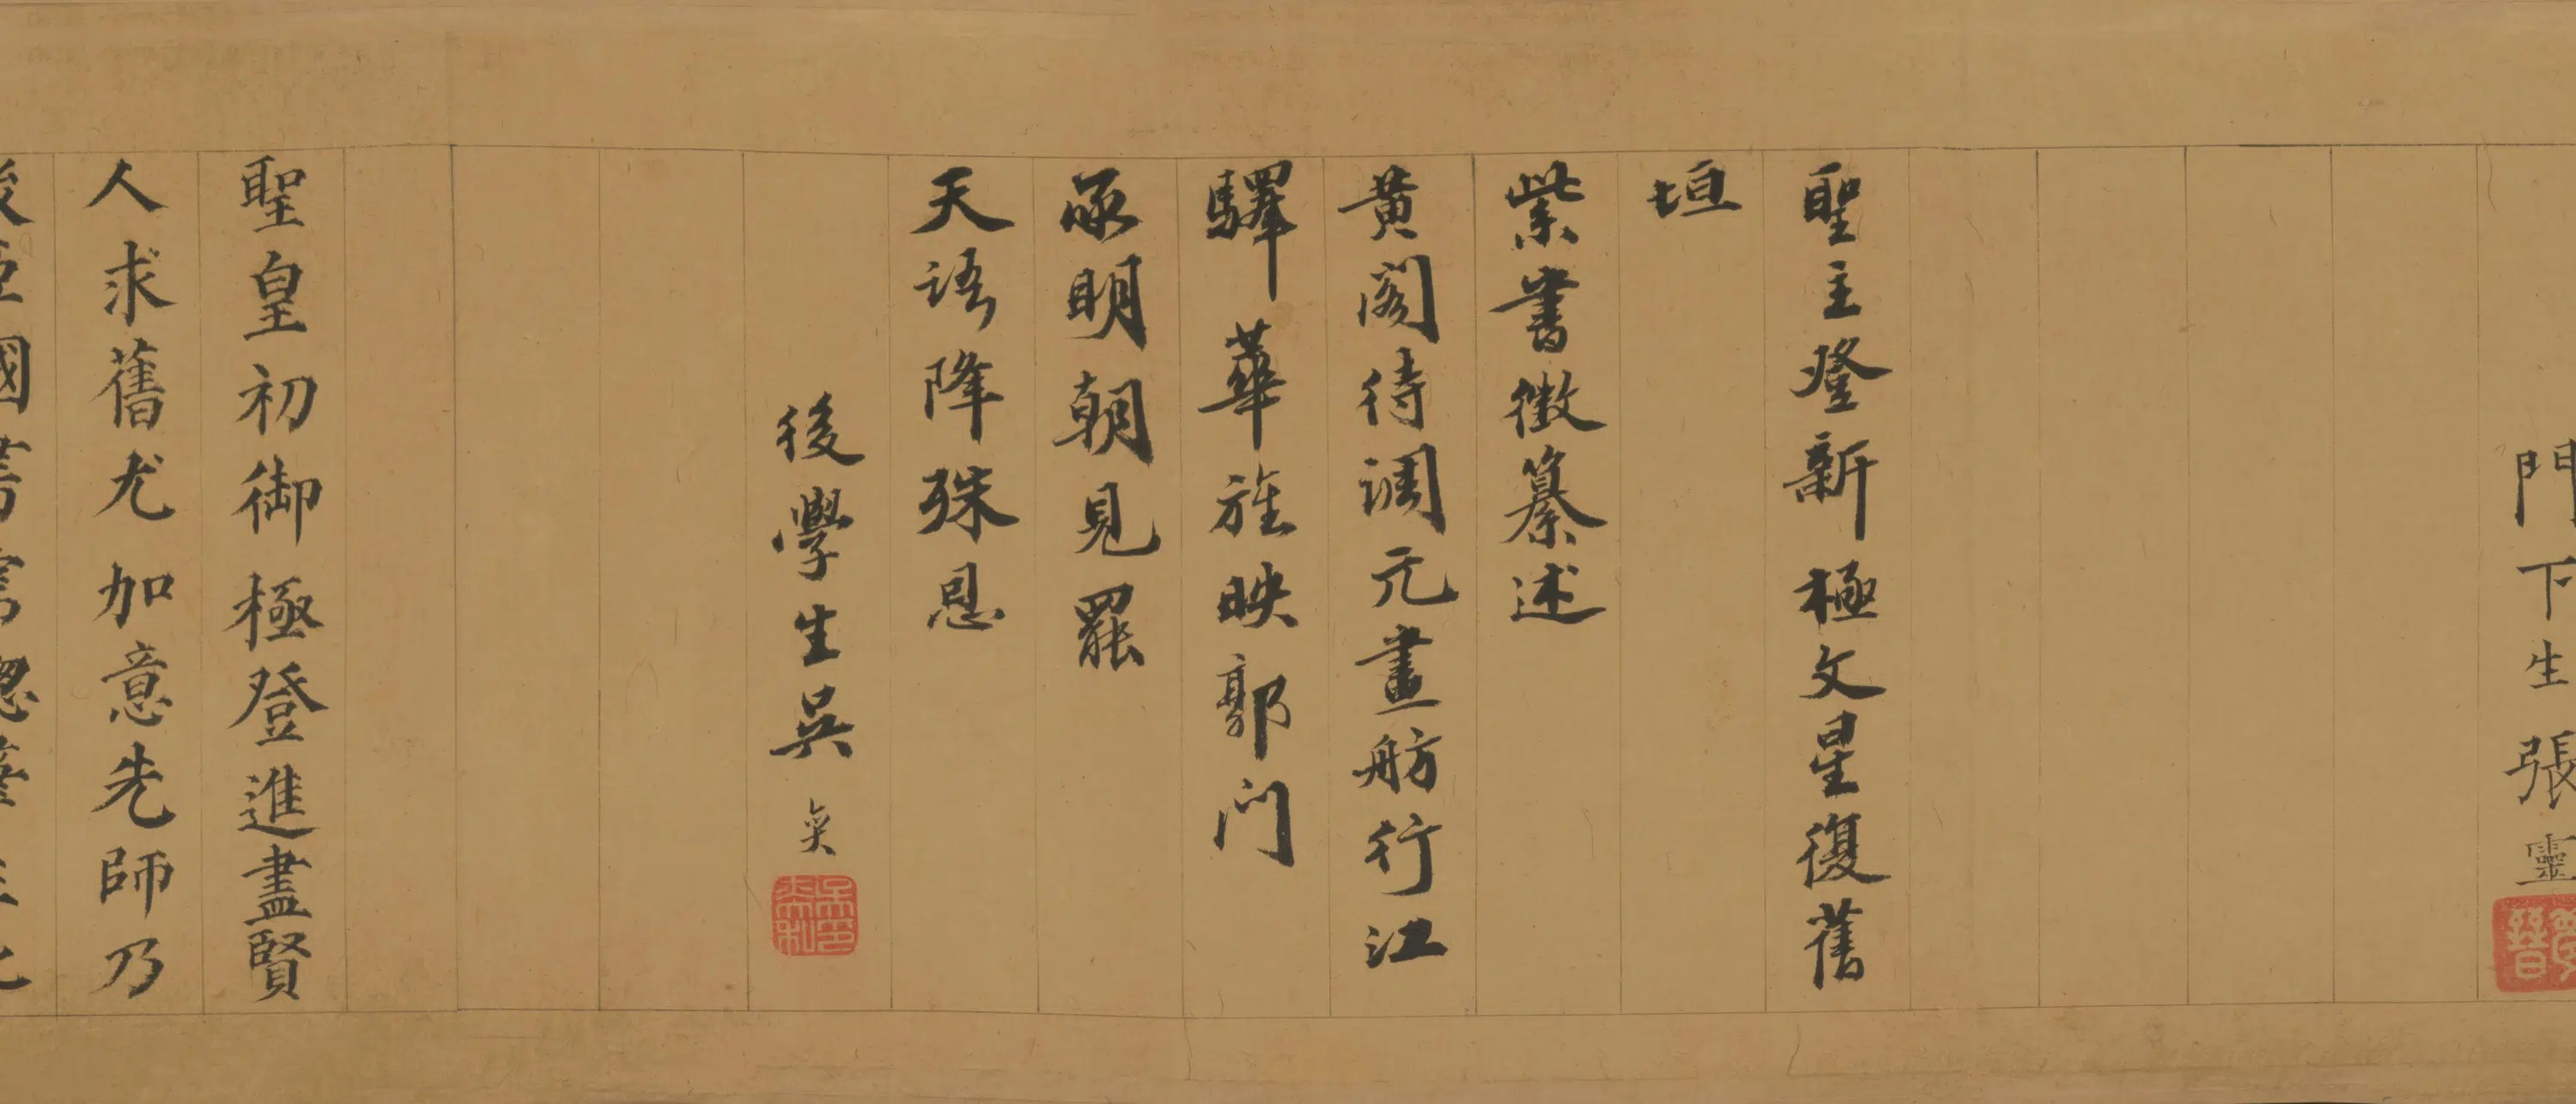 門下生張靈
聖主登新極文星復舊
垣
紫書徵纂述
黃閣待調元畫舫行江
驛華旌映郭门
承明朝見罷
天語降殊恩
後學生吳奕
聖皇初御極登進盡賢
人求舊尤加意先師乃